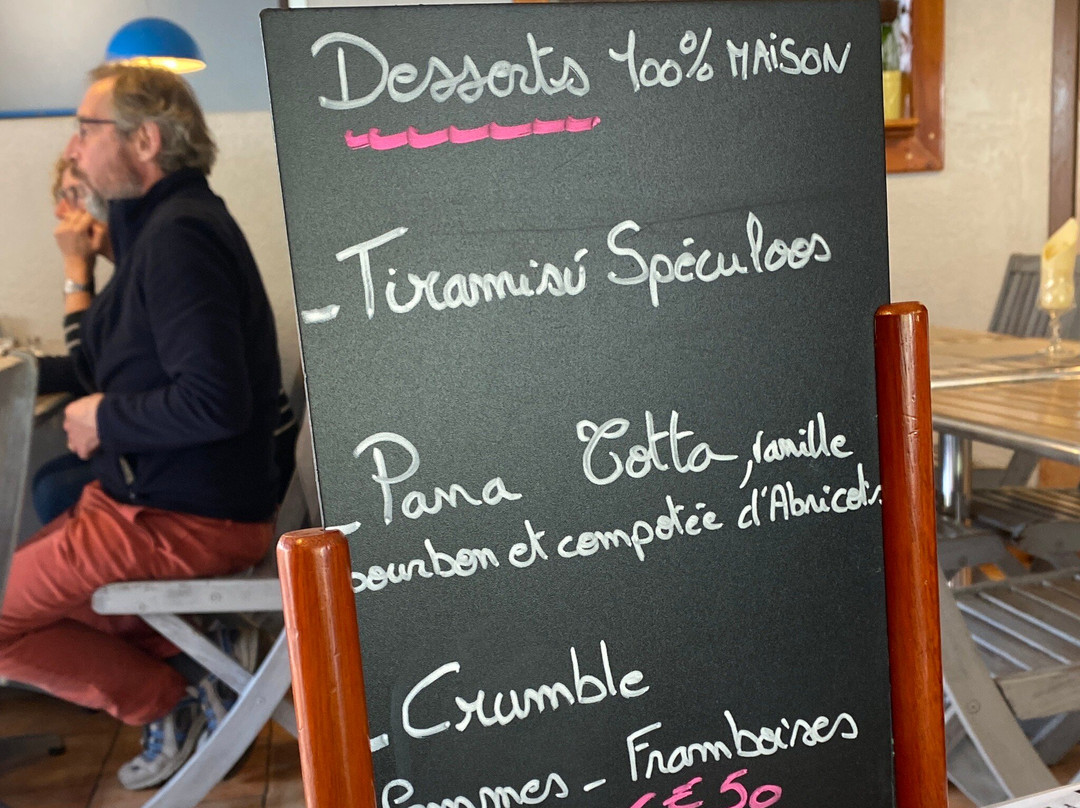 Desserts 100% MAISON
- Tiramisú Spéculoos
- Pana Cotta, vanille
bourbon et compotée d'Abricots
- Crumble
Pommes - Framboises
€50